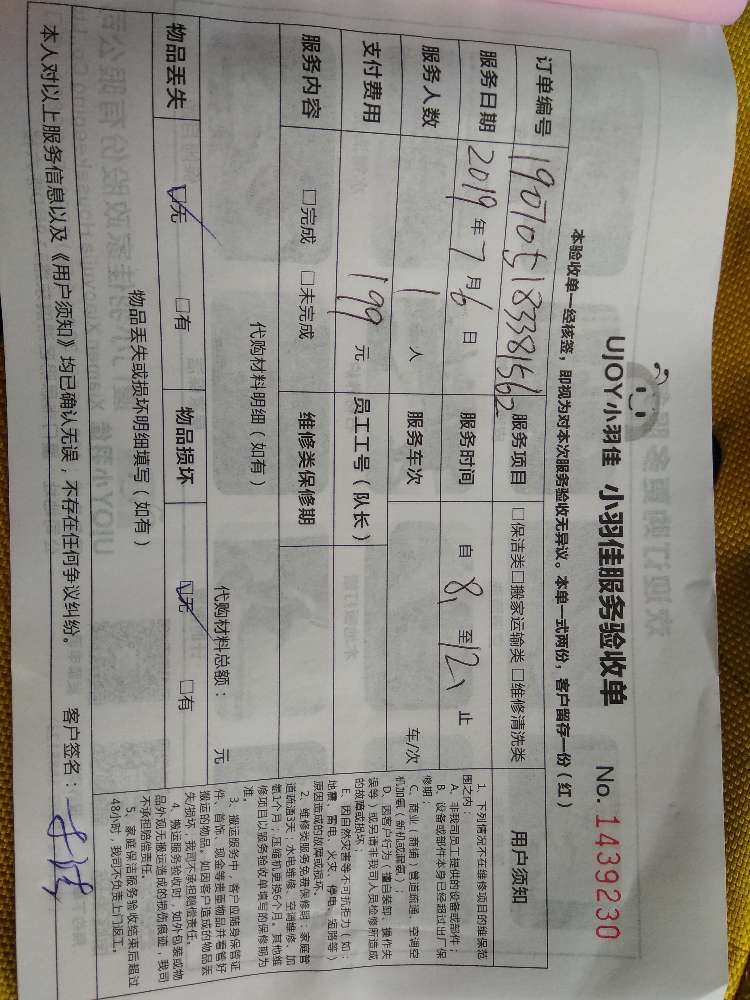 UJOY小羽佳 小羽佳服务验收单 No. 1439230
本验收单一经核签，即视为对本次服务验收无异议。本单一式两份，客户留存一份（红）
订单编号 190705183381562 服务项目 □保洁类□搬家运输类 □维修清洗类
服务日期 2019年7月6日 服务时间 自8:至12:止
服务人数 1人 服务车次 车/次
支付费用 199元 员工工号（队长）
服务内容 □完成 □未完成 维修类保修期
代购材料明细（如有） 代购材料总额： 元
物品丢失 ☑无 □有 物品损坏 ☑无 □有
物品丢失或损坏明细填写（如有）
本人对以上服务信息以及《用户须知》均已确认无误，不存在任何争议纠纷。 客户签名：
用户须知
1、下列情况不在维修项目的维保范
围之内：
A、非我司员工提供的设备或部件；
B、设备或部件本身已经超过出厂保
修期；
C、商业（商铺）管道疏通、空调空
机加氟（新机或漏氟）；
D、因客户行为（擅自装卸、操作失
误等）或另请非我司人员检修所造成
的故障或损坏；
E、因自然灾害等不可抗拒力（如：
地震、雷电、火灾、停电、短路等）
原因造成的故障或损坏。
2、维修类服务免费保修期：家庭管
道疏通3天；水电维修、空调维修、加
氟1个月；压缩机更换6个月。其他维
修项目以服务验收单填写的保修期为
准。
3、搬运服务中，客户应随身保管证
件、首饰、现金等贵重物品并看管好
搬运的物品。如因客户造成的物品丢
失/损坏，我司不承担赔偿责任。
4、搬运服务验收时，如外包装或物
品外观无搬运造成的损伤痕迹，我司
不承担赔偿责任。
5、家庭保洁服务验收结束后超过
48小时，我司不负责上门返工。